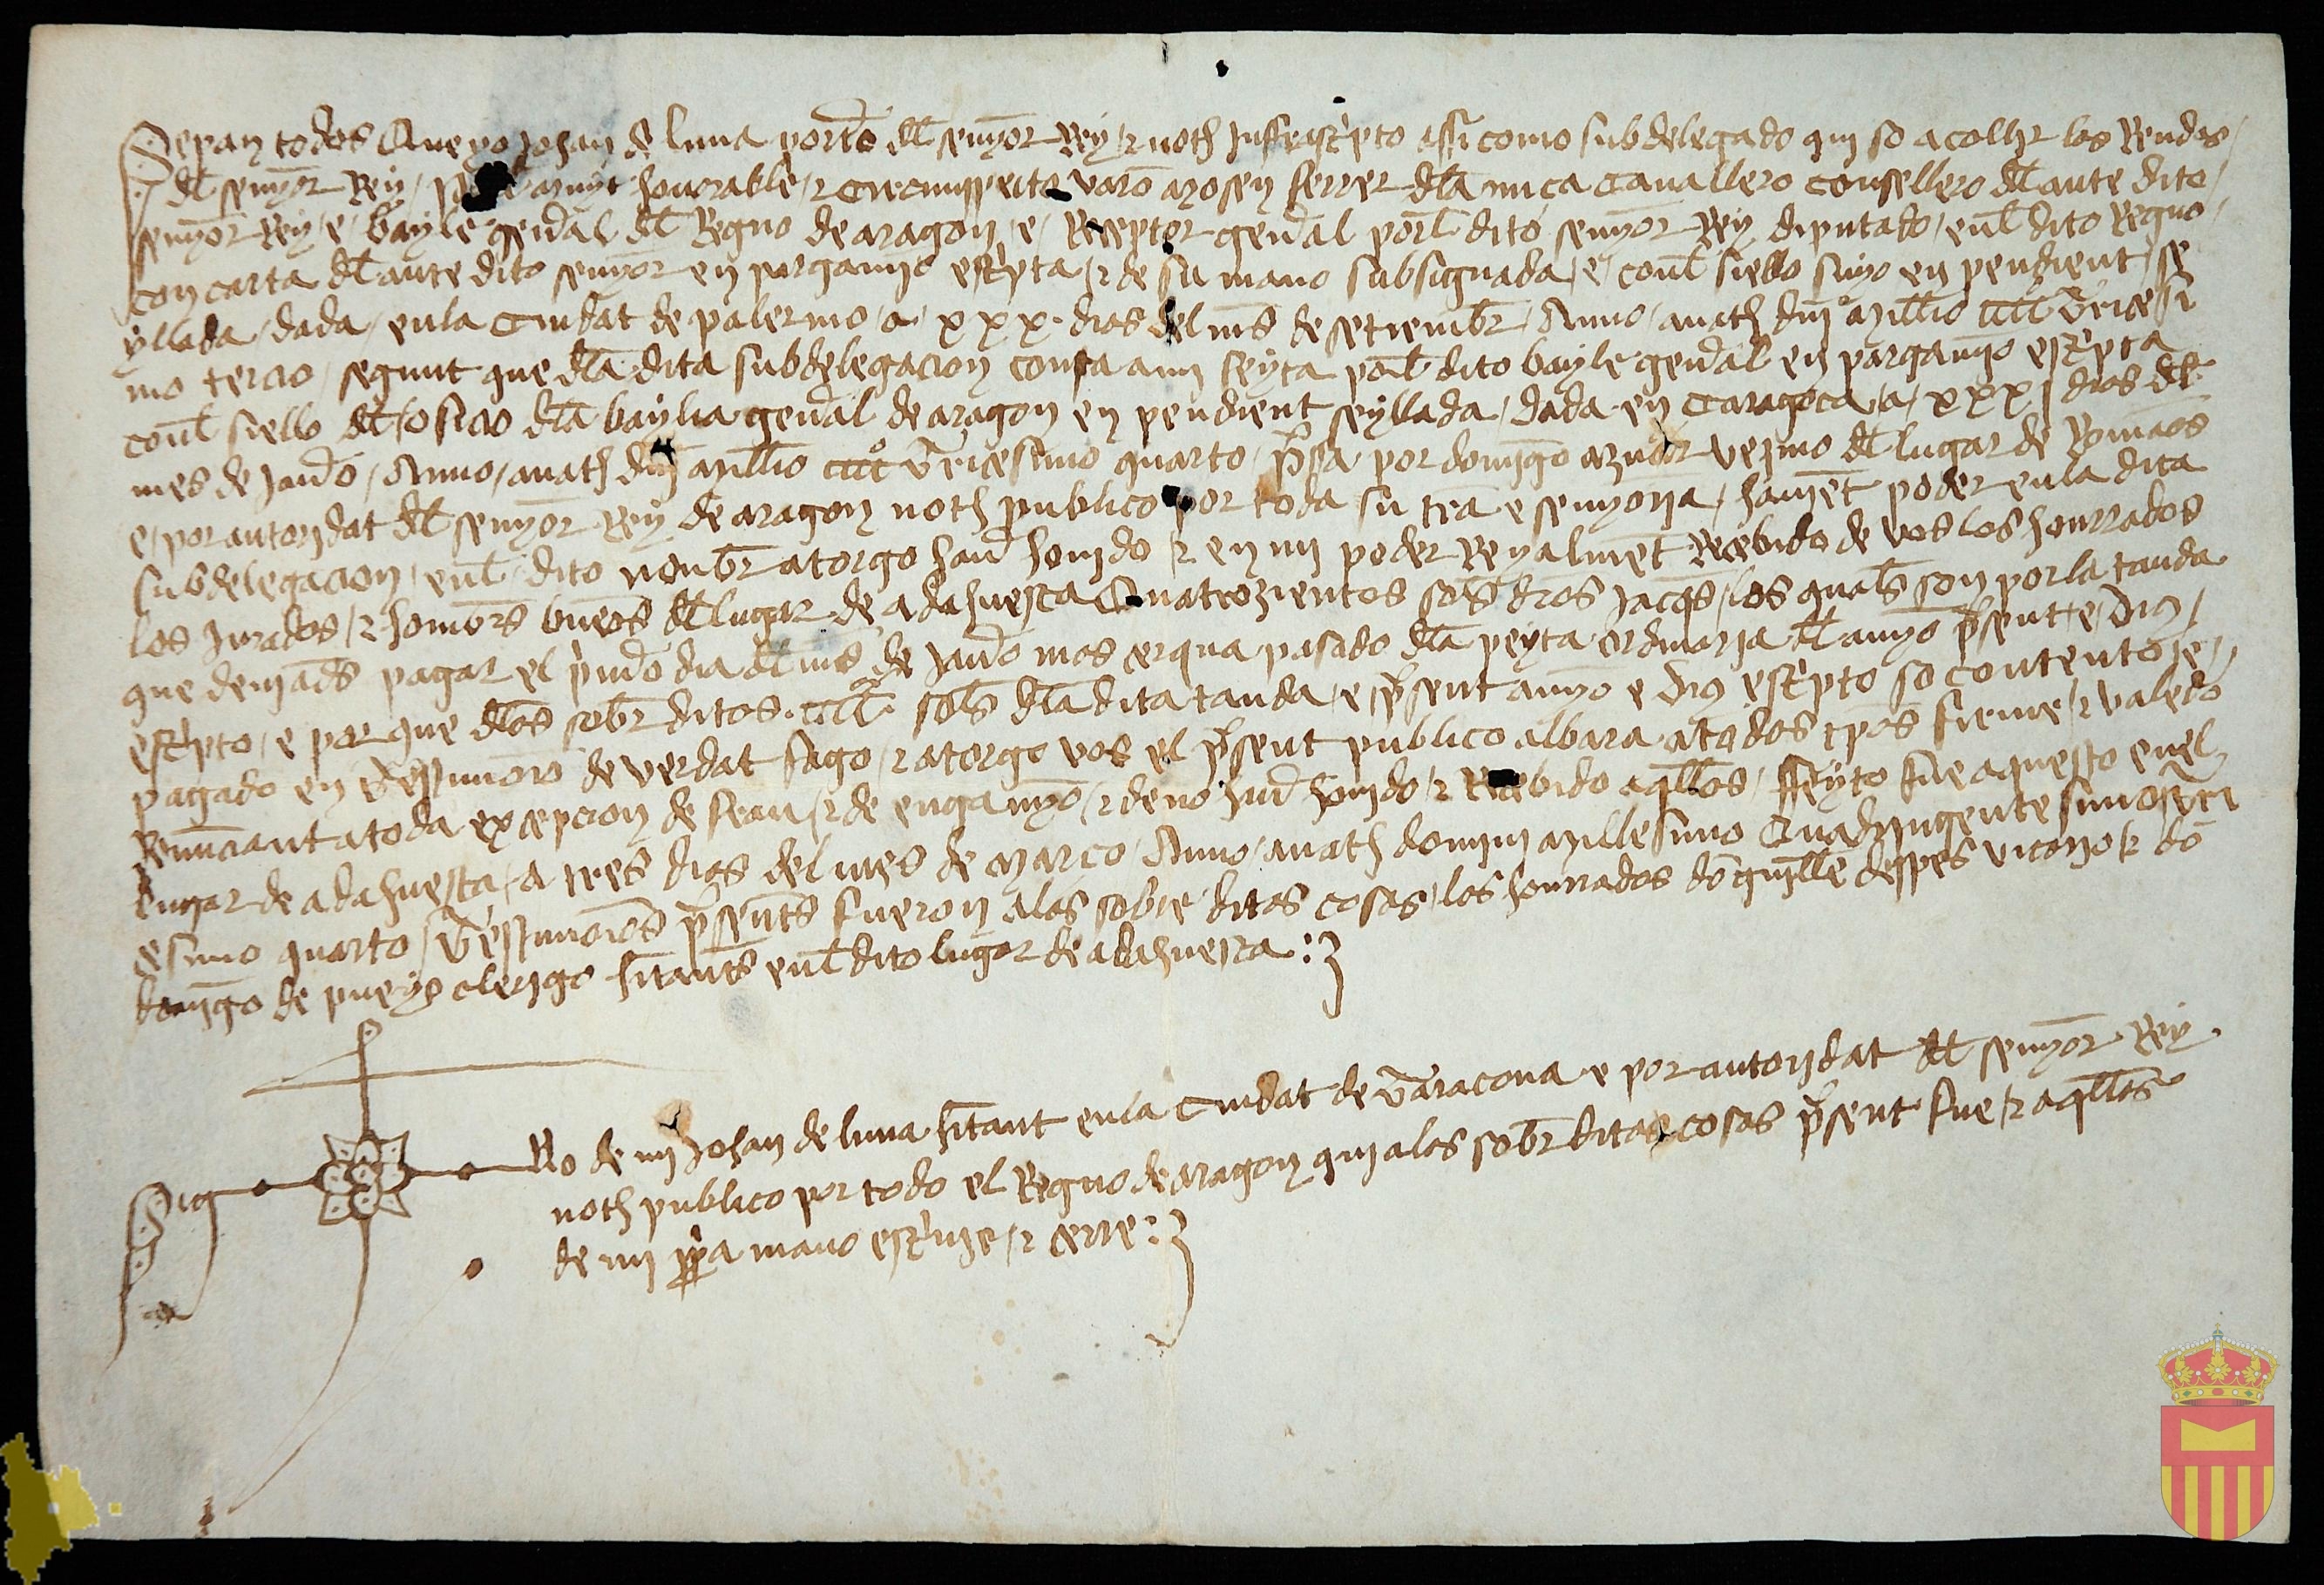 Sepan todos Que yo Johan de luna port̃o dl̃ senyor Rey / ⁊ noth Jnffrascp̀to assi como subdelegado qui so acollir los Rendas /
dl̃ senyor Rey / muyt honorable / ⁊ circunspecto varõ mosen ferrer dl̃a nuça cavallero consellero dl̃ ante dito /
senyor Rey / e / bayle gen̄al dl̃ Regno de aragon / e / Receptor gen̄al porl̃ dito senyor Rey diputado / enl̃ dito Regno /
con carta dl̃ ante dito senyor en pargamỹo esc̀pta / ⁊ de su mano subsignada / e / conl̃ siello suyo en pendient / se
yllada / dada / enla Ciudat de palermo / a / xxx. dias del mes̃ de setiembr̃ / Anno / anath dnĩ millio cccc̃ Tricesi
mo tercio / segunt que dl̃a dita subdelegacion consta a mi feyta porl̃ dito bayle gen̄al en pargamỹo esc̀pta
conl̃ siello dl̃ oficio dl̃a baylia gen̄al de aragon en pendient seyllada / dada en Caragoca / a / xxxj dias dl̃
mes de Jan̄o / Anno / anath dnĩ millio cccc̊ Tricesimo quarto / p̃sa por domĩgo aznar vezino dl̃ lugar de Romãos
e / por autoridat dl̃ senyor Rey de aragon noth publico por toda su tr̃a e senyoria / haviẽt poder enla dita
subdelegacion / enl̃ dito nonbr̃ atorgo hav̄ hovido / ⁊ en mi poder Reyalmẽt Recebido de vos los honrrados
los Jurados / ⁊ hombr̃s buẽos dl̃ lugar de adahuesca Quatrozientos sol̃s drõs Jacq̃s / los qual̃s son por la tanda
que deviads̃ pagar el p̀m̄o dia dl̃ mes̃ de Jan̄o mas cerqua pasado dl̃a peyta ordinaria dl̃ anyo p̃sent / e / Dius /
esc̀pto / e por que dl̃os sobr̃ ditos. cccc̃. sol̃s dl̃a dita tanda / e p̃sent anyo e Dius esc̀pto so contento / e /
pagado en Testimõio de verdat fago / ⁊ atorgo vos el p̃sent publico albara a todos tp̃os firme / ⁊ valedõ
Renũciant a toda excepcion de frau / ⁊ de enganyo / ⁊ de no hav̄ hovido / ⁊ Recebido aq̃llos / ffeyto fue aquesto enel
lugar de adahuesca / a tres dias del mes de Março / Anno / anath domini Millesimo Quadringentesimo Tri
cesimo quarto / Testimoiõs p̃sent̃s fueron a las sobre ditas cosas / los honrrados dõ guillẽ despes vicario / ⁊ dõ
domĩgo de pueyo clerigo h̃itant̃s enl̃ dito lugar de adahuesca :
Sig
No de mi Johan de luna h̃itant enla Ciudat de Taracona e por autoridat dl̃ senyor Rey
noth publico por todo el Regno de aragon qui a las sobr̃ ditas cosas p̃sent fue / ⁊ aq̃llos
de mi p̃pa mano esc̀vie / ⁊ cerre :